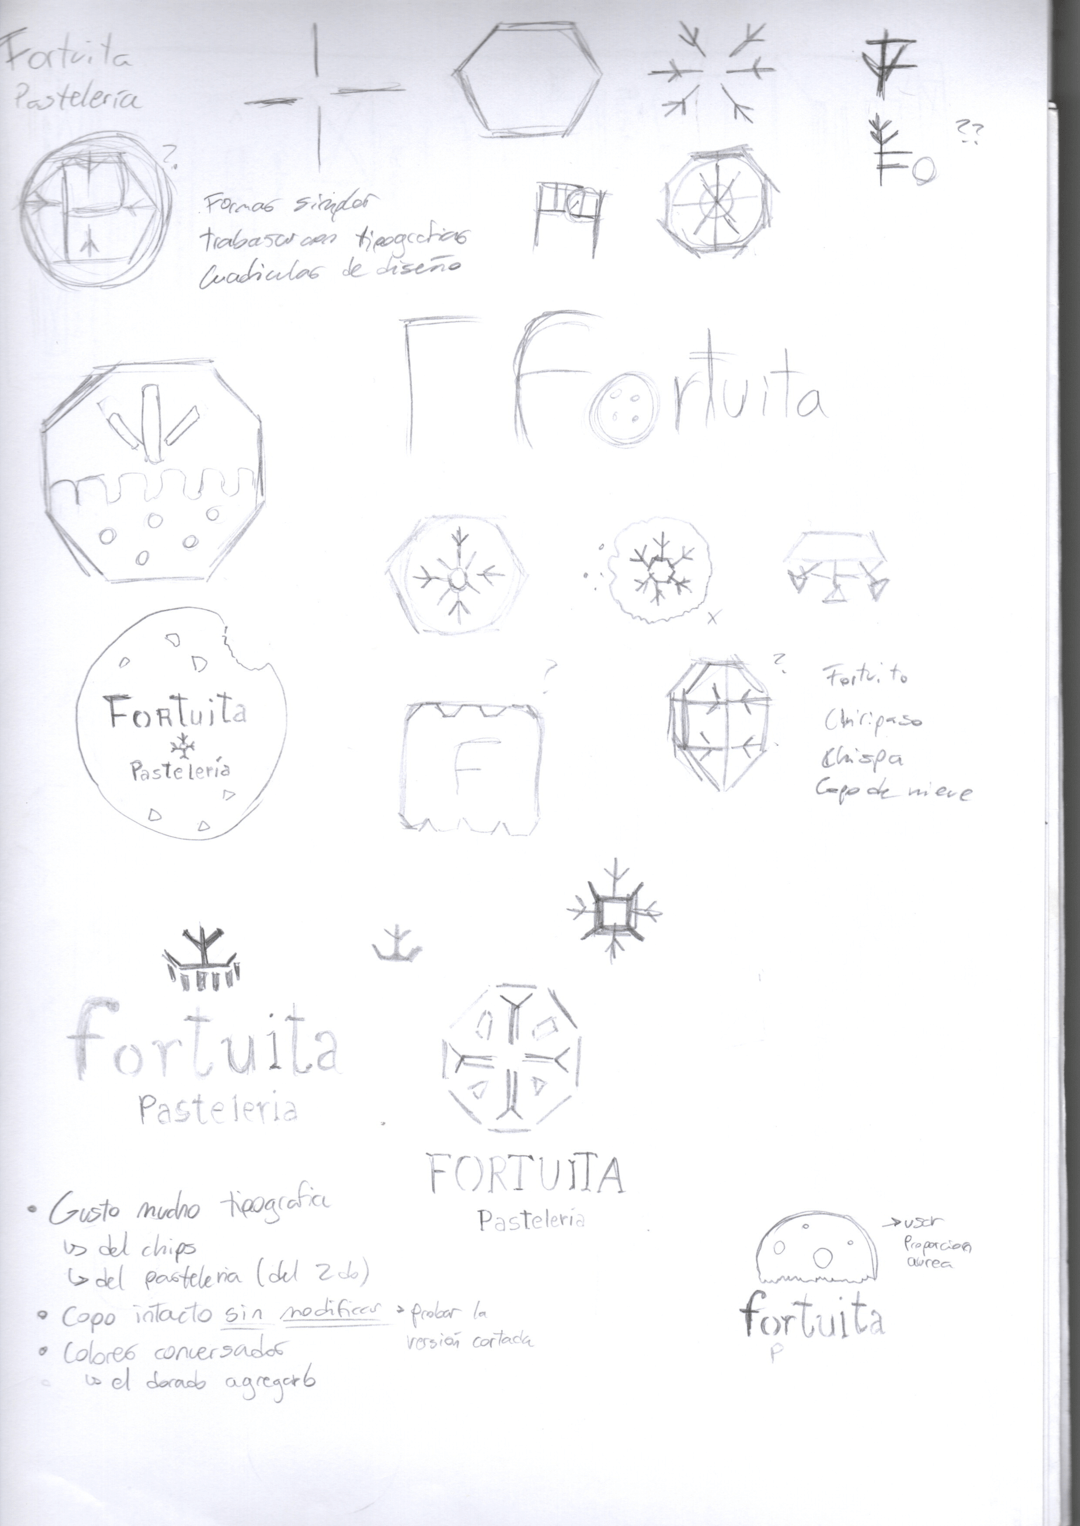 Fortuita
Pastelería
?
??
Formas simples
trabajar con tipografias
Cuadiculas de diseño
Fo
F Fortuita
Fortuita
Pastelería
?
F
?
Fortuito
Chiripaso
Chispa
Copo de nieve
x
fortuita
Pasteleria
FORTUITA
Pastelería
• Gusto mucho tipografia
↳ del chips
↳ del pasteleria (del 2do)
• Copo intacto sin modificar > probar la
versión cortada
• Colores conversados
↳ el dorado agregarlo
→ usar
Proporcion
aurea
fortuita
P